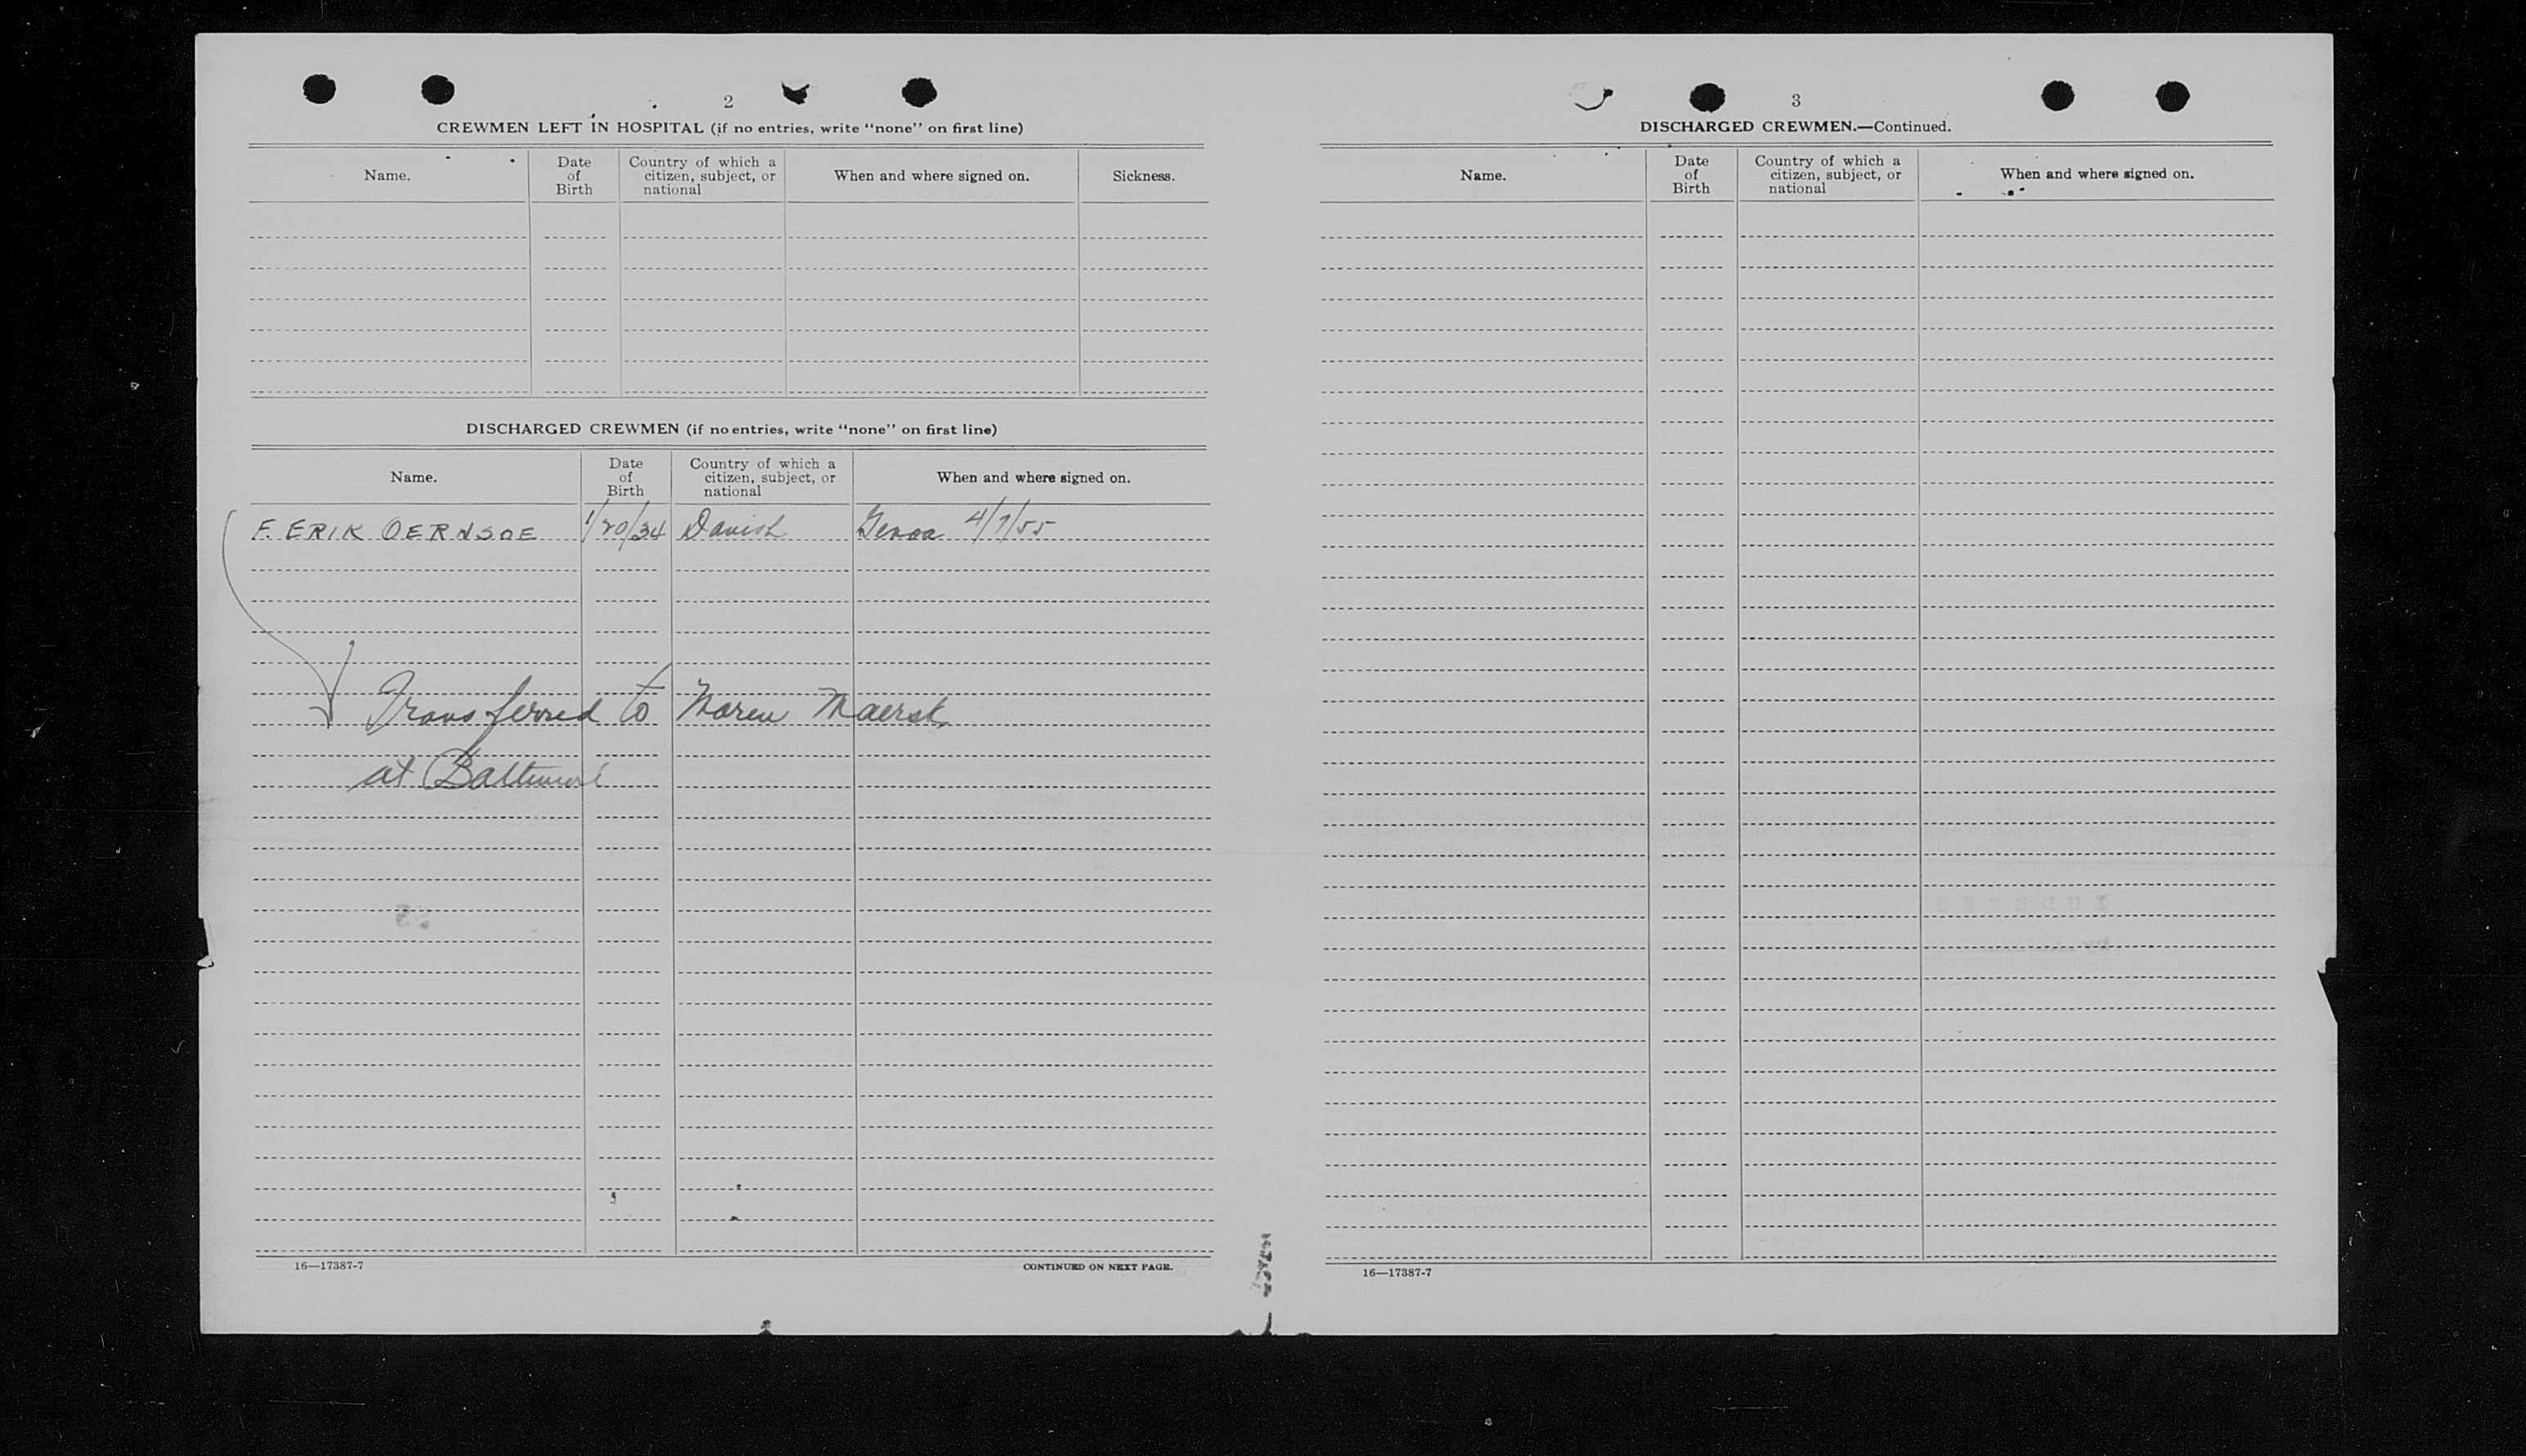 2
CREWMEN LEFT IN HOSPITAL (if no entries, write "none" on first line)
Name. Date of Birth Country of which a citizen, subject, or national When and where signed on. Sickness.
DISCHARGED CREWMEN (if no entries, write "none" on first line)
Name. Date of Birth Country of which a citizen, subject, or national When and where signed on.
F. ERIK OERNSOE 1/20/34 Danish Genoa 4/7/55
Transferred to Maren Maersk
at Baltimore
16—17387-7 CONTINUED ON NEXT PAGE.
3
DISCHARGED CREWMEN.—Continued.
Name. Date of Birth Country of which a citizen, subject, or national When and where signed on.
16—17387-7